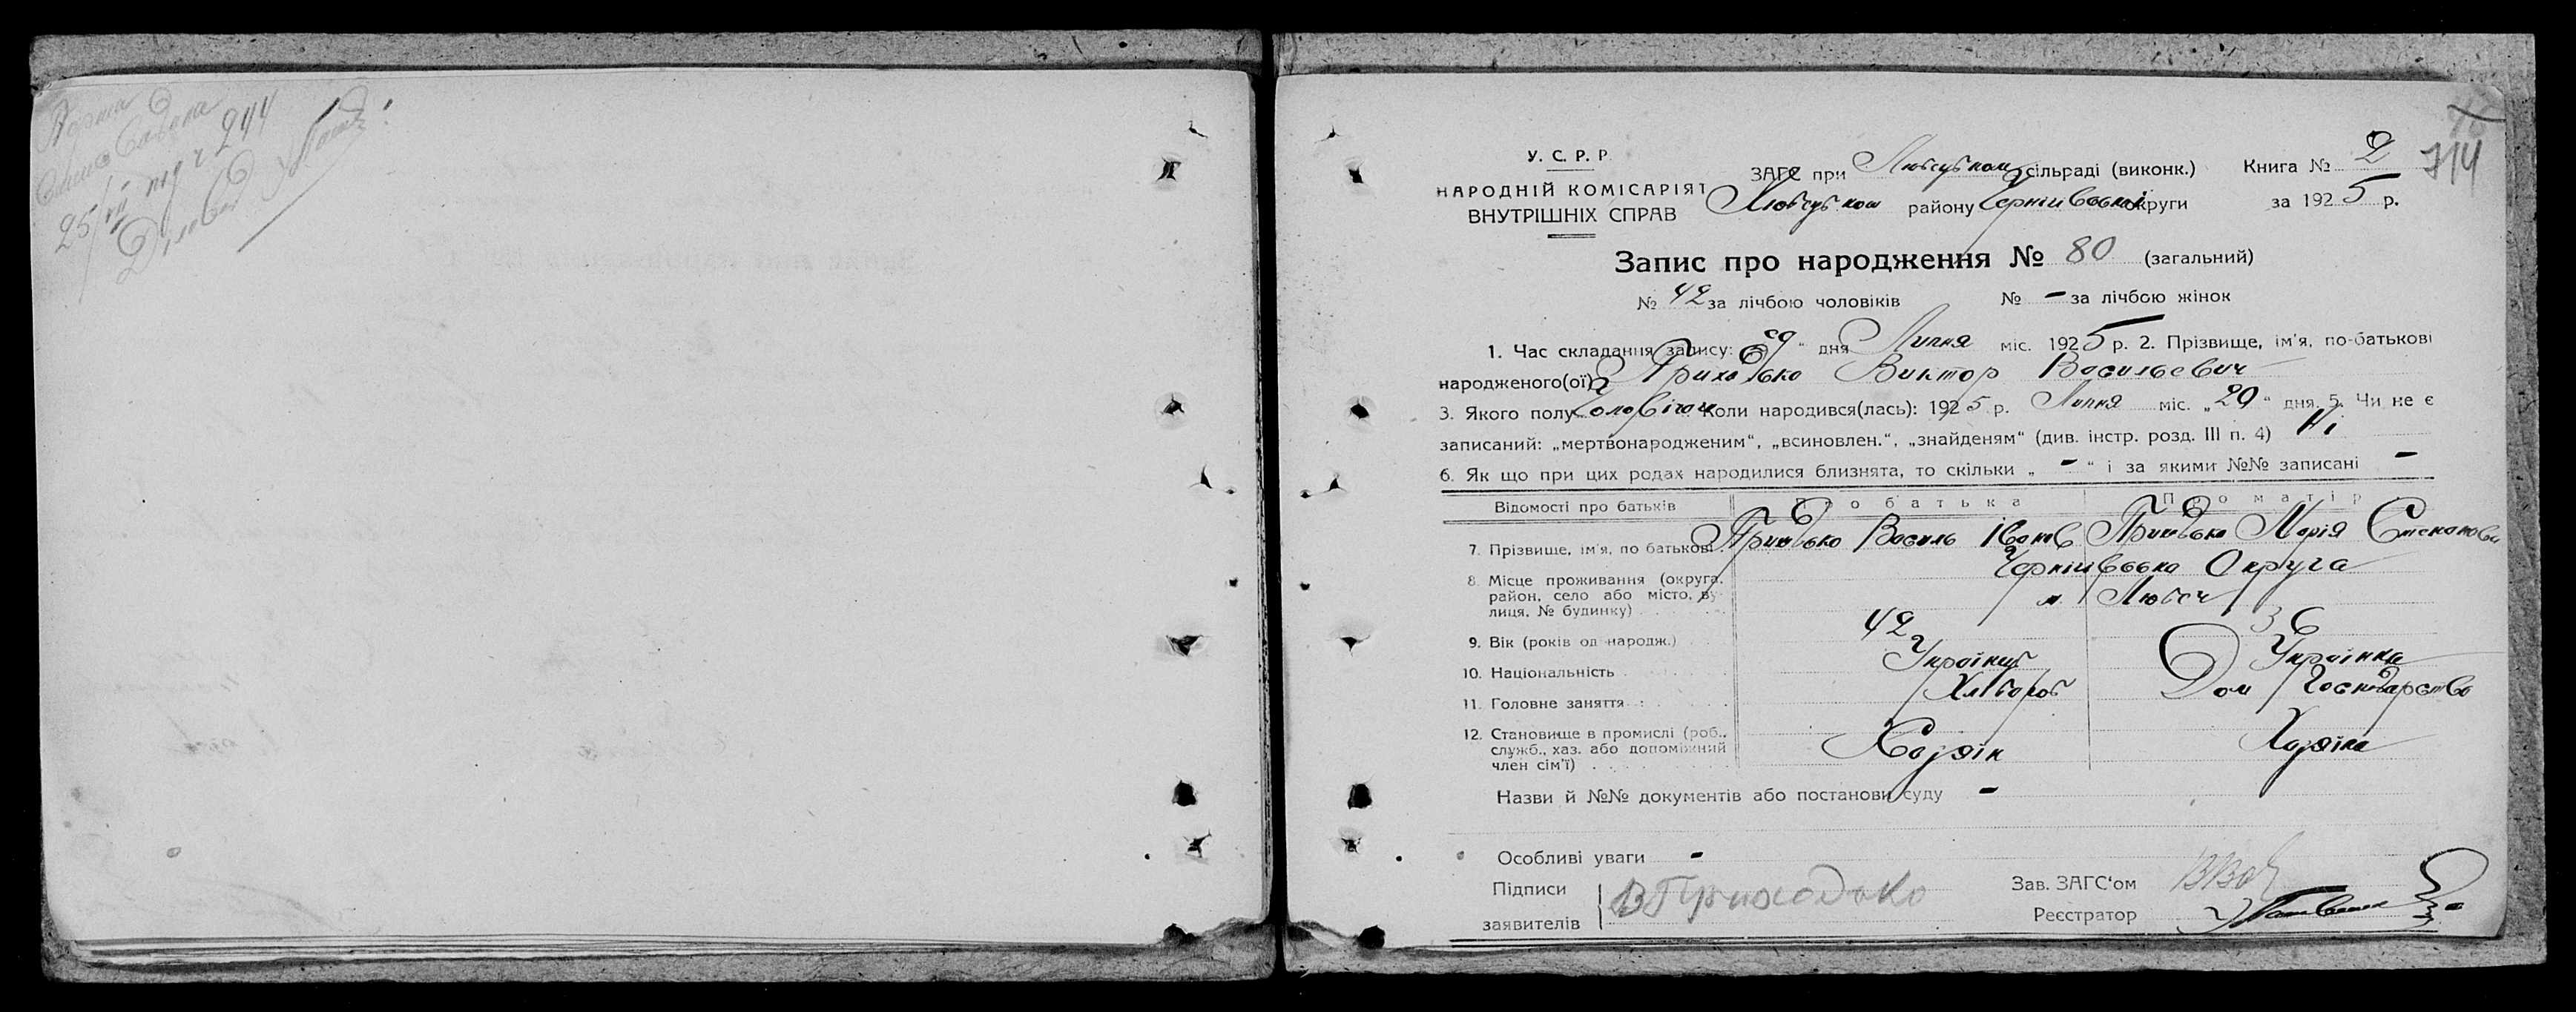 25/VII 244
У. С. Р. Р.
НАРОДНІЙ КОМІСАРІЯТ
ВНУТРІШНІХ СПРАВ
ЗАГС при сільраді (виконк.) Книга № 2
району округи за 1925 р.
714
Запис про народження № 80 (загальний)
№ 42 за лічбою чоловіків № - за лічбою жінок
1. Час складання запису: дня Липня міс. 1925 р. 2. Прізвище, ім'я, по-батькові
народженого(ої) Приходько Виктор Васильевич
3. Якого полу Коли народився(лась): 1925 р. Липня міс. „20“ дня. 5. Чи не є
записаний: „мертвонародженим“, „всиновлен.“, „знайденям“ (див. інстр. розд. III п. 4) Ні
6. Як що при цих родах народилися близнята, то скільки „ - “ і за якими №№ записані -
Відомості про батьків Про батька Про матір
7. Прізвище, ім'я, по батькові Василь Іванов Марія Степанова
8. Місце проживання (округа, район, село або місто, вулиця, № будинку) Округа
м. Любеч
9. Вік (років од народж.) 42 36
10. Національність Українець Українка
11. Головне заняття Хлібороб Дом Господарство
12. Становище в промислі (роб., служб., хаз. або допоміжний член сім'ї) Хозяїн Хозяїка
Назви й №№ документів або постанови суду -
Особливі уваги -
Підписи заявителів В Приходько
Зав. ЗАГС'ом
Реєстратор